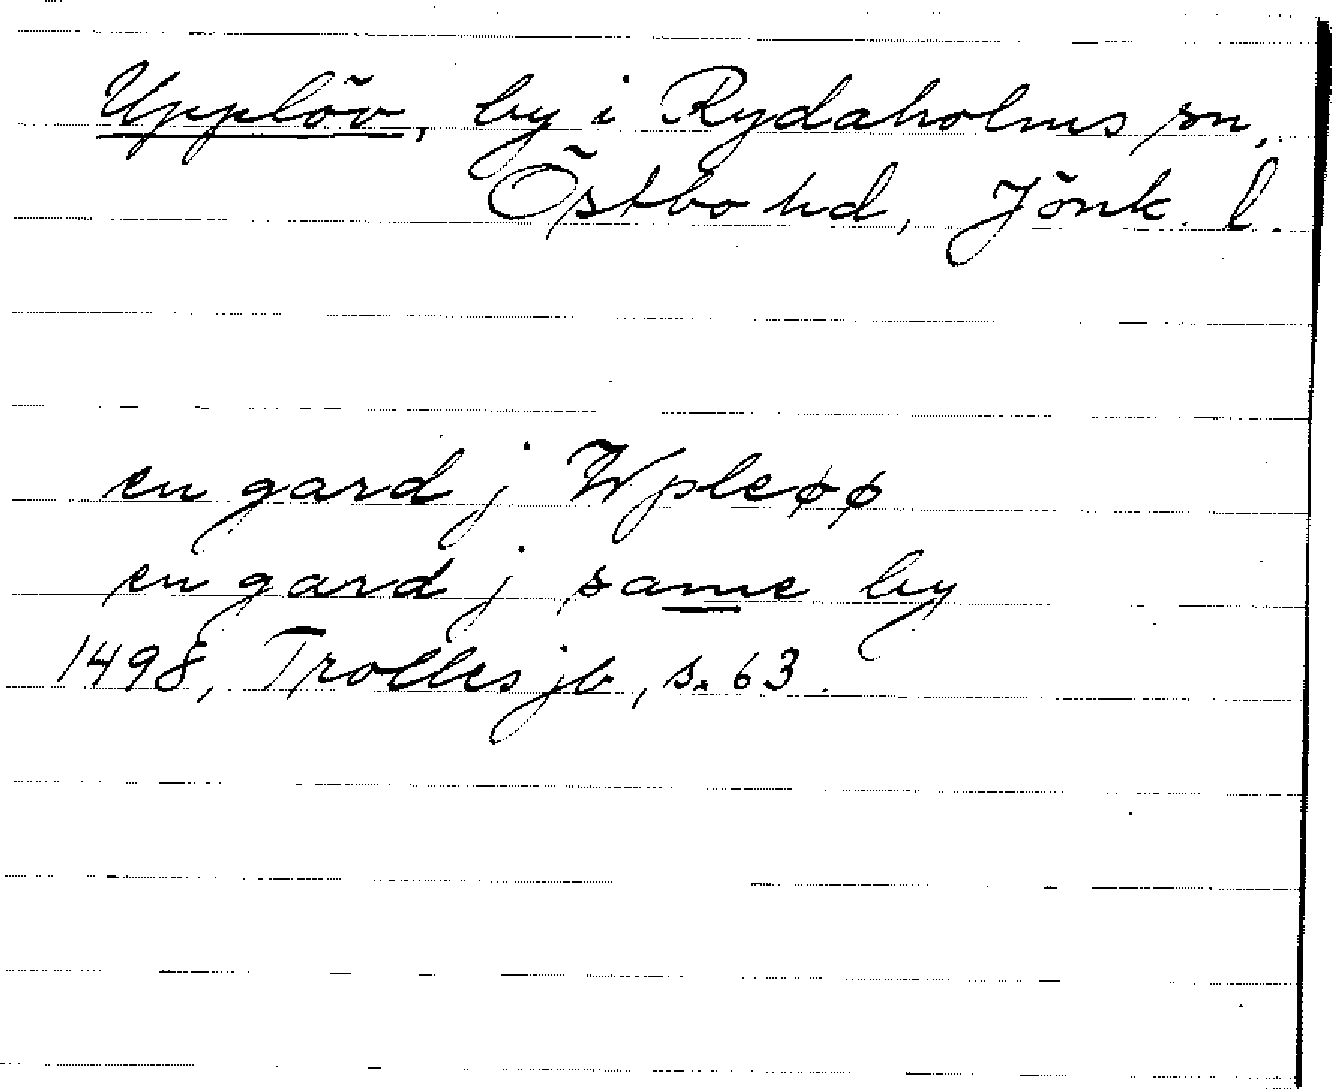 Upplöv, by i Rydaholms sn,
Östbo hd, Jönk. l.
en gard j Wpleøø
en gard j same by
1498, Trolles jb, s. 63.